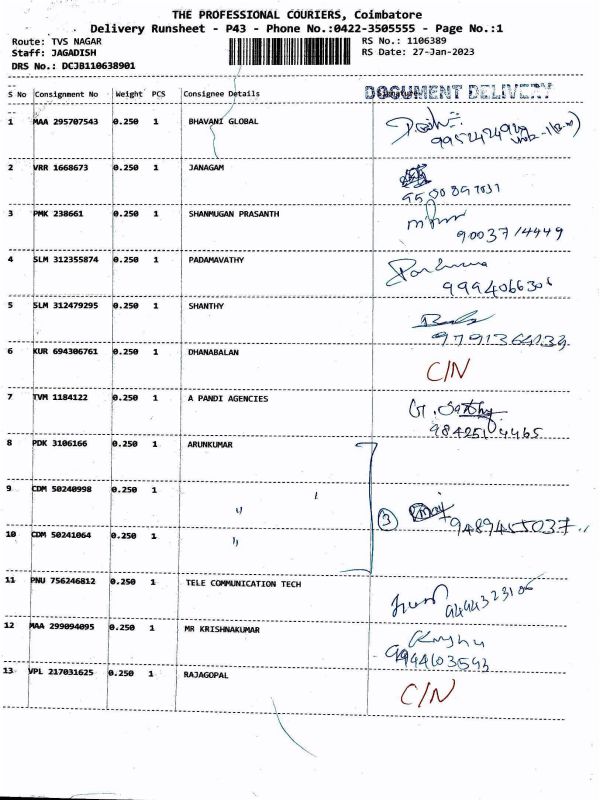 THE PROFESSIONAL COURIERS, Coimbatore
Delivery Runsheet - P43 - Phone No.:0422-3505555 - Page No.:1
Route: TVS NAGAR RS No.: 1106389
Staff: JAGADISH RS Date: 27-Jan-2023
DRS No.: DCJB110638901
S No Consignment No Weight PCS Consignee Details DOCUMENT DELIVERY
1 MAA 295707543 0.250 1 BHAVANI GLOBAL
2 VRR 1668673 0.250 1 JANAGAM
3 PMK 238661 0.250 1 SHANMUGAN PRASANTH
9003714449
4 SLM 312355874 0.250 1 PADAMAVATHY
9994066306
5 SLM 312479295 0.250 1 SHANTHY
6 KUR 694306761 0.250 1 DHANABALAN C/N
7 TVM 1184122 0.250 1 A PANDI AGENCIES
8 PDK 3106166 0.250 1 ARUNKUMAR
9 CDM 50240998 0.250 1 "
3 9489455037
10 CDM 50241064 0.250 1 "
11 PNU 756246812 0.250 1 TELE COMMUNICATION TECH
12 MAA 299094095 0.250 1 MR KRISHNAKUMAR
13 VPL 217031625 0.250 1 RAJAGOPAL C/N